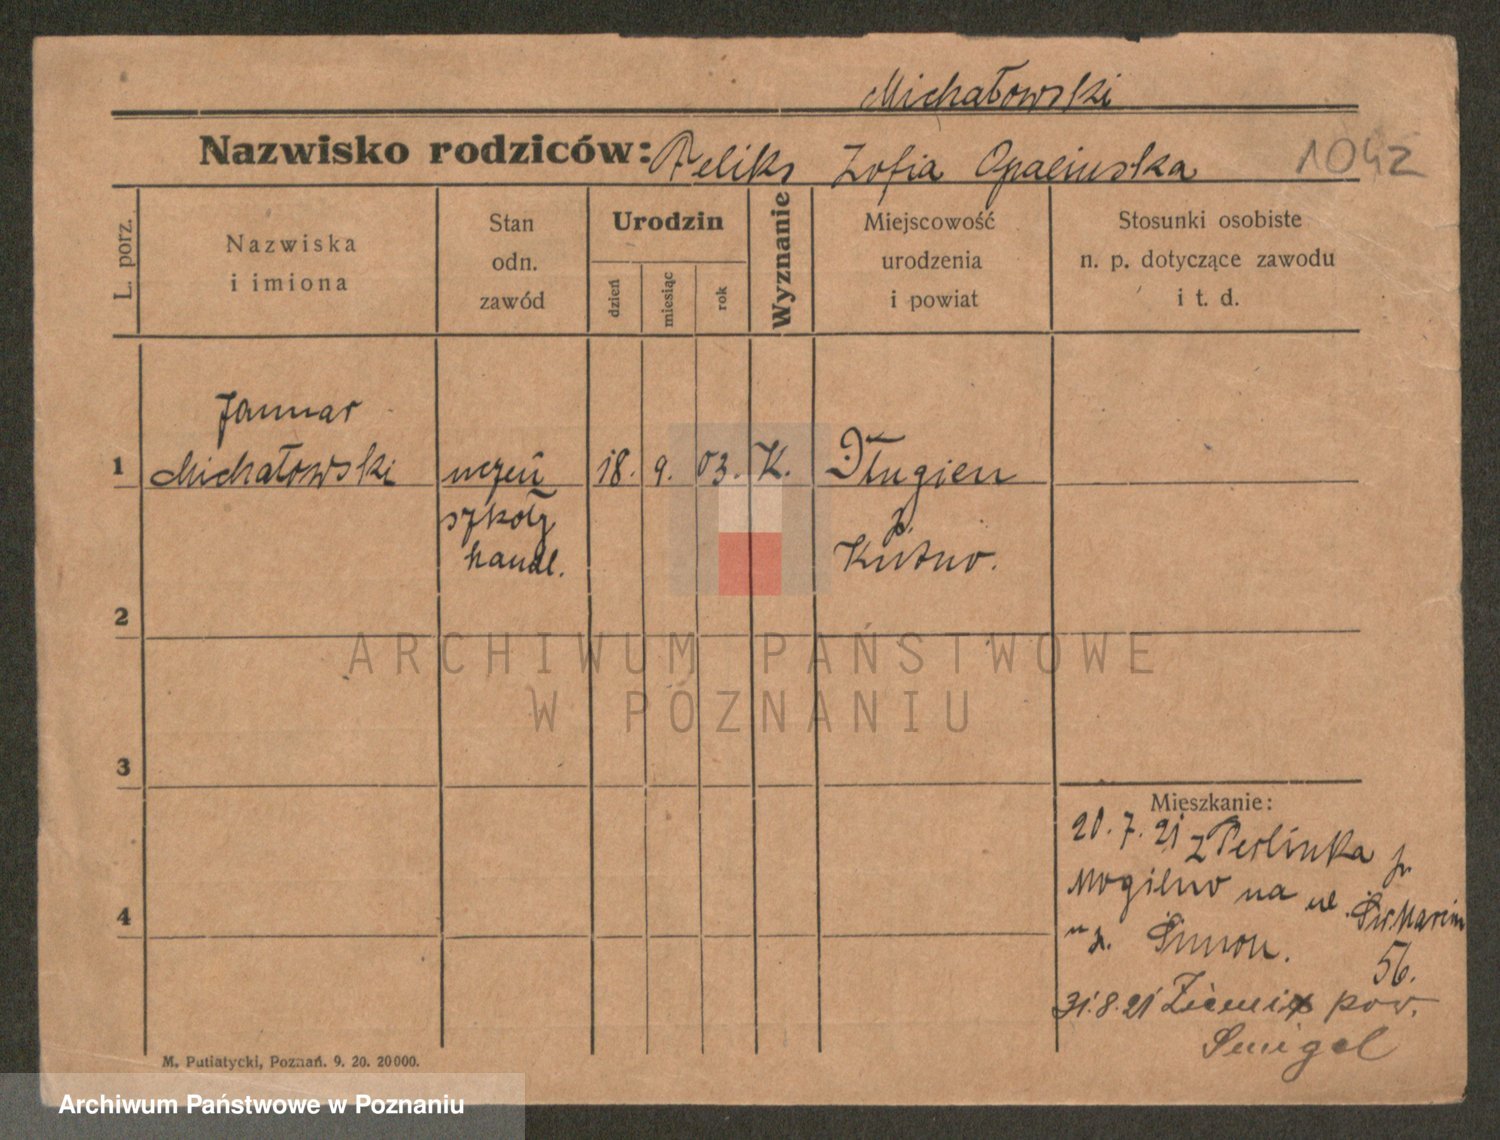 Michałowski
Nazwisko rodziców: Feliks Zofia Opalińska
1042
L. porz.
Nazwiska
i imiona
Stan
odn.
zawód
Urodzin
dzień
miesiąc
rok
Wyznanie
Miejscowość
urodzenia
i powiat
Stosunki osobiste
n. p. dotyczące zawodu
i t. d.
1
Januar
Michałowski
uczeń
szkoły
handl.
18.
9.
03.
K.
Długien
p.
Kutno.
2
3
4
Mieszkanie:
20.7.21 z Perlinka p.
Mogilno na ul. Św Marcin
u p. 56.
31.8.21 pow.
Śmigel
M. Putiatycki, Poznań. 9. 20. 20000.
ARCHIWUM PAŃSTWOWE
W POZNANIU
Archiwum Państwowe w Poznaniu